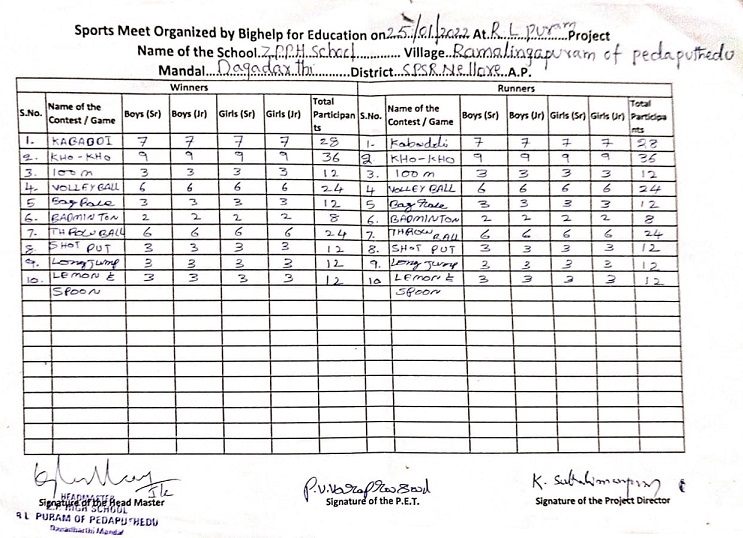 Sports Meet Organized by Bighelp for Education on 25/01/2022 At R.L puram Project
Name of the School Z.P.P.H. School Village Ramalingapuram of pedaputhedu
Mandal Dagadarthi District SPSR Nellore A.P.
Winners Runners
S.No. Name of the Contest / Game Boys (Sr) Boys (Jr) Girls (Sr) Girls (Jr) Total Participants S.No. Name of the Contest / Game Boys (Sr) Boys (Jr) Girls (Sr) Girls (Jr) Total Participants
1. KABADDI 7 7 7 7 28 1. Kabaddi 7 7 7 7 28
2. KHO-KHO 9 9 9 9 36 2 KHO-KHO 9 9 9 9 36
3. 100 m 3 3 3 3 12 3. 100 m 3 3 3 3 12
4. VOLLEYBALL 6 6 6 6 24 4 VOLLEY BALL 6 6 6 6 24
5 Bag Race 3 3 3 3 12 5 Bag Race 3 3 3 3 12
6. BADMINTON 2 2 2 2 8 6. BADMINTON 2 2 2 2 8
7. THROW BALL 6 6 6 6 24 7. THROW BALL 6 6 6 6 24
8. SHOT PUT 3 3 3 3 12 8. SHOT PUT 3 3 3 3 12
9. Long Jump 3 3 3 3 12 9. Long Jump 3 3 3 3 12
10. LEMON & SPOON 3 3 3 3 12 10 LEMON & SPOON 3 3 3 3 12
Signature of the Head Master Signature of the P.E.T. Signature of the Project Director
HEADMASTER
Z.P. HIGH SCHOOL
R L PURAM OF PEDAPUTHEDU
Dagadharthi Mandal